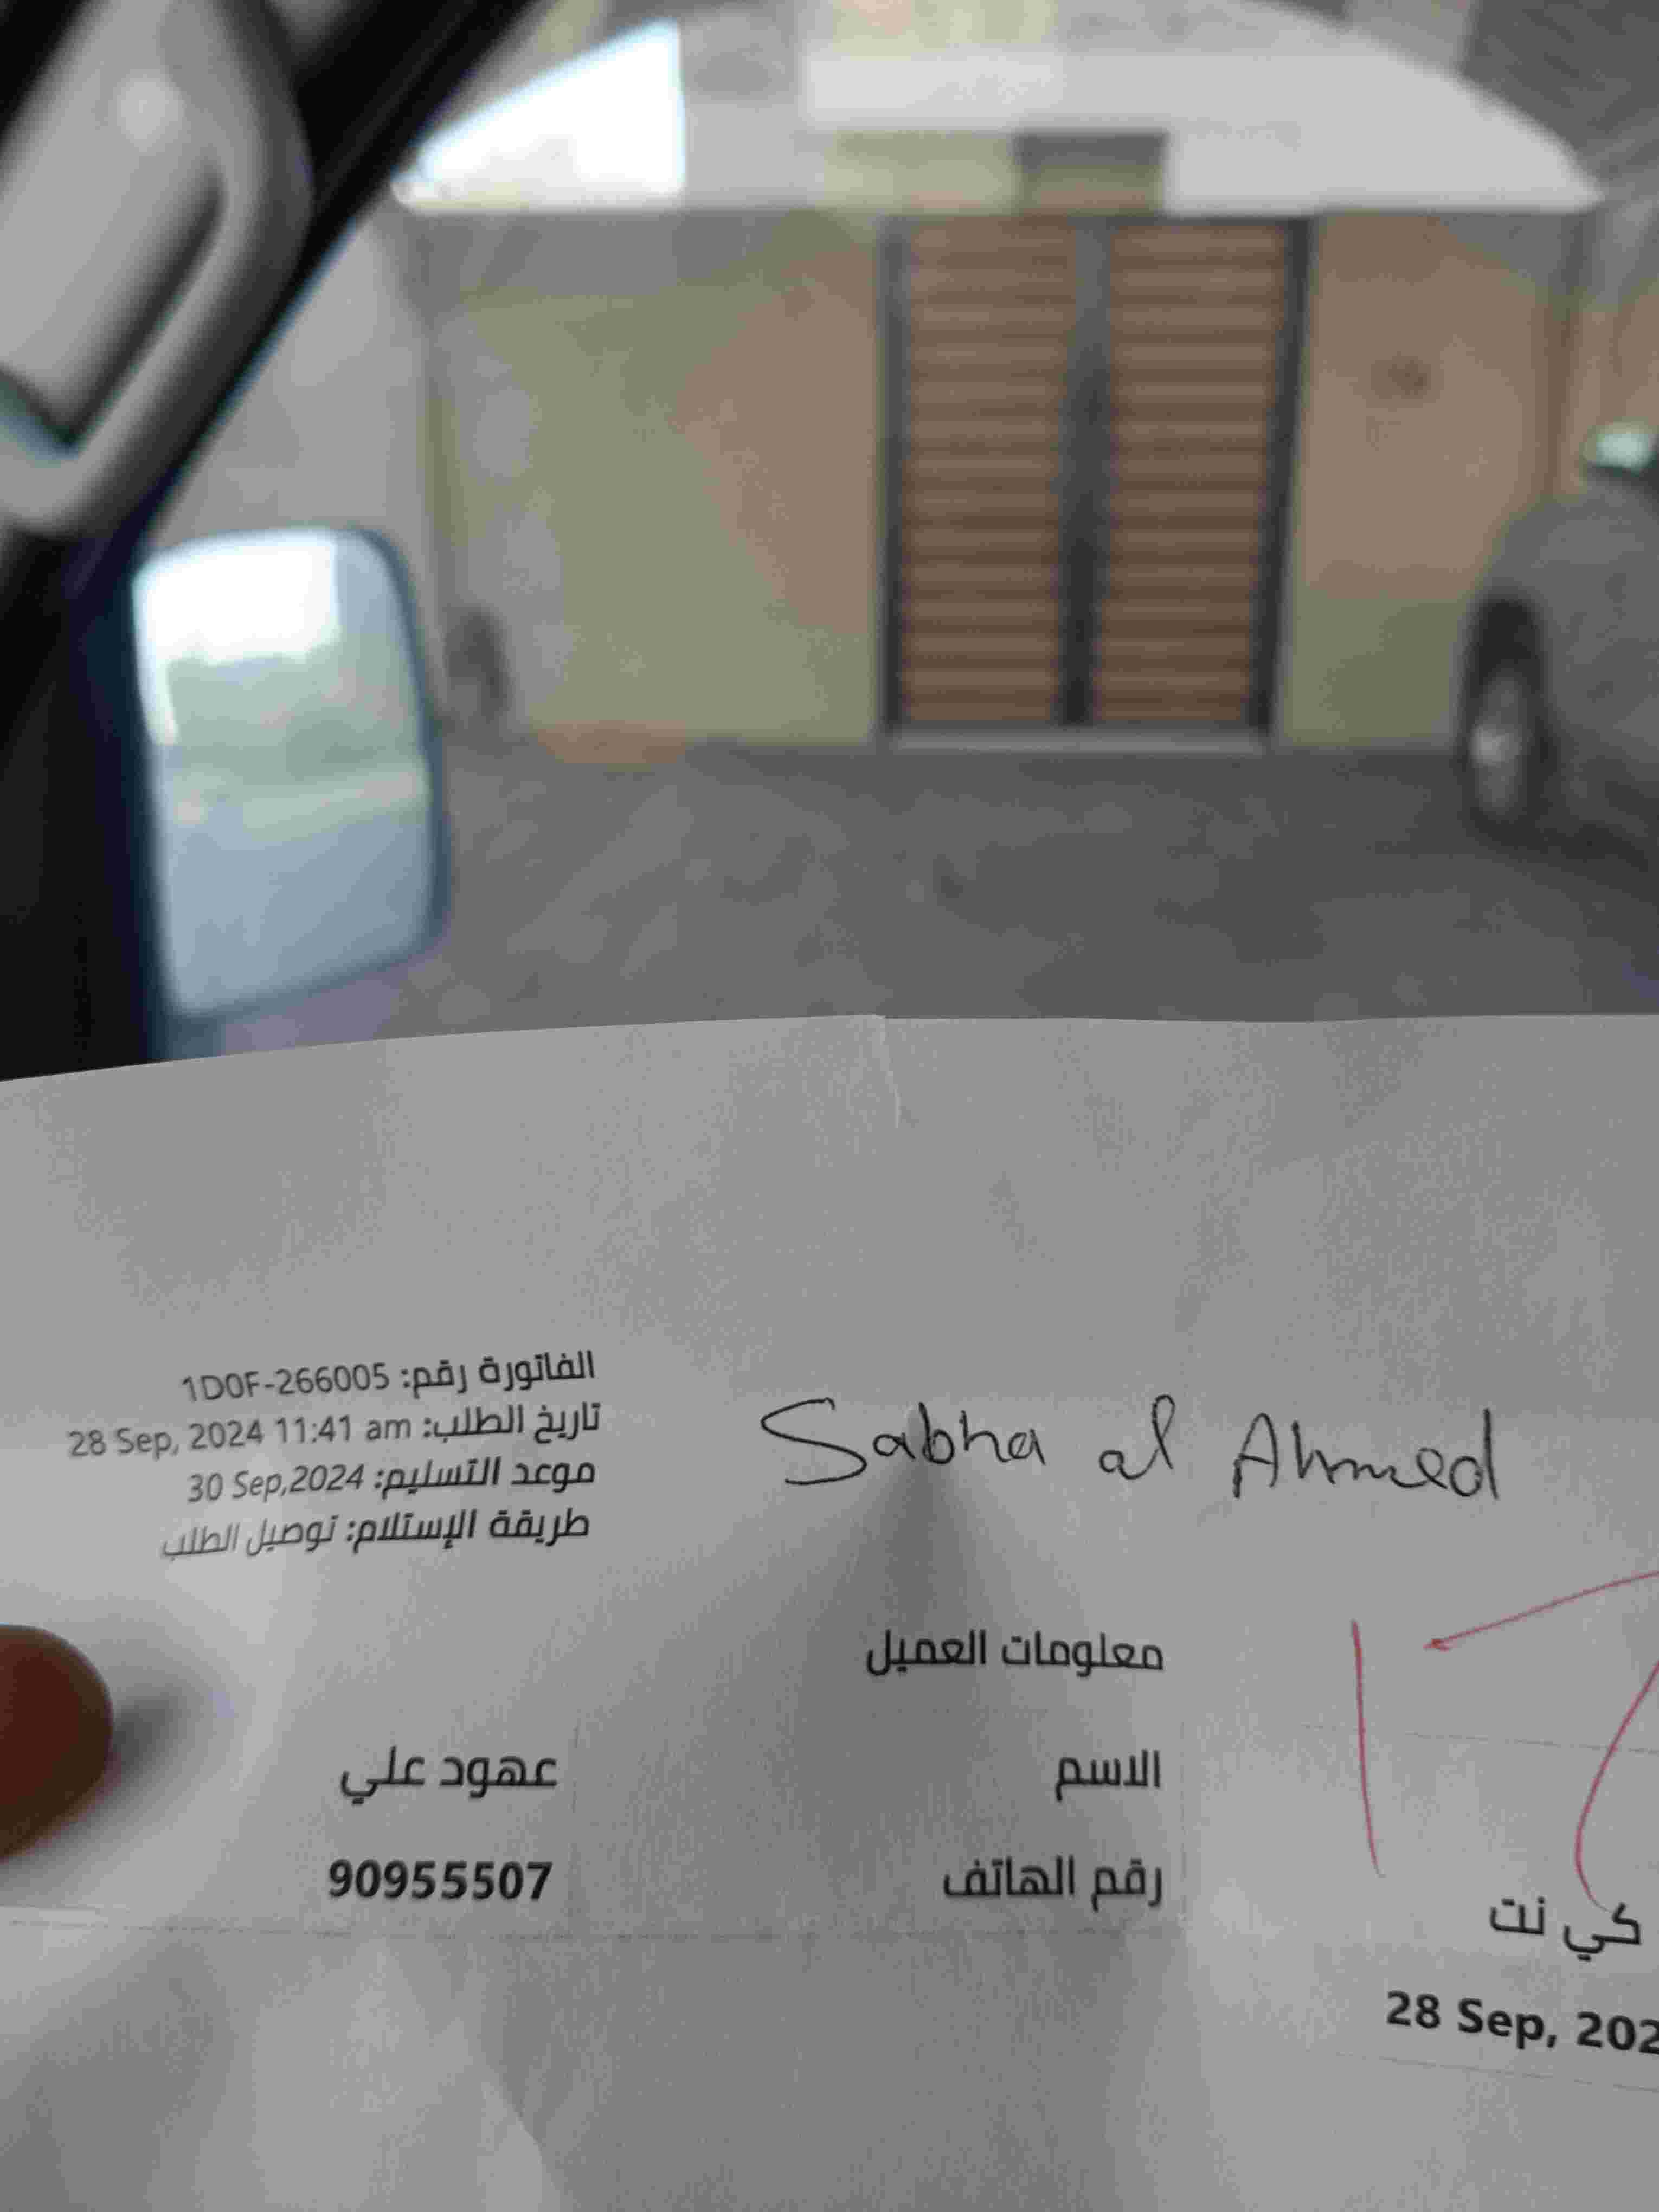 الفاتورة رقم: 1D0F-266005
تاريخ الطلب: 28 Sep, 2024 11:41 am
موعد التسليم: 30 Sep,2024
طريقة الإستلام: توصيل الطلب
Sabha al Ahmed
معلومات العميل
الاسم عهود علي
رقم الهاتف 90955507
كي نت
28 Sep, 202